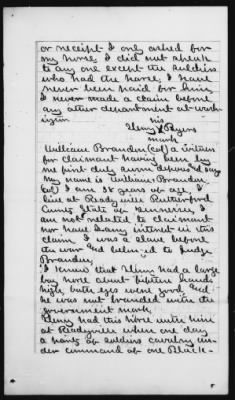 or receipt I only asked for
my horse, I did not speak
to any one except the soldiers
who had the horse, I have
never been paid for him
I never made a claim before
any other department at wash-
ington
his
Henry X Byers
mark
William Brandon (col) a witness
for claimant having been by
me first duly sworn deposes & says
my name is William Brandon
(col) I am 38 years of age I
live at Readyville Rutherford
County State of Tennessee, I
am not related to claimant
nor have I any interest in this
claim I was a slave before
the war and belonged to Judge
Brandon,
I know that Henry had a large
bay horse about fifteen hands
high both eyes were good and
he was not branded with the
government mark,
Henry had this horse with him
at Readyville when one day
a party of soldiers cavalry un-
der command of one Black-